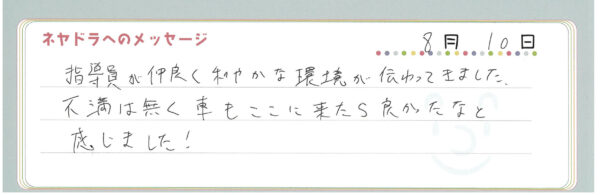 ネヤドラへのメッセージ
8月 10日
指導員が仲良く和やかな環境が伝わってきました。
不満は無く車もここに来たら良かったなと
感じました!